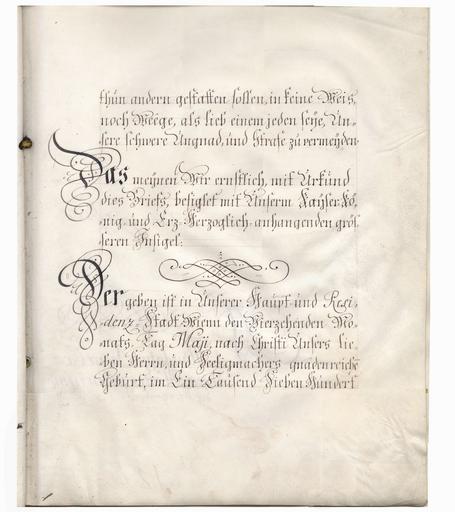 thun andern gestatten sollen, in keine Weis,
noch Weege, als lieb einem jeden seye, Un-
sere schwere Ungnad, und Strafe zu vermeyden
Das meynen Wir ernstlich, mit Urkund
dies Briefs, besiglet mit Unserm Kayser-Kö-
nig- und Erz-Herzoglich-anhangenden grös-
seren Insigel:
Der geben ist in Unserer Haupt- und Resi-
denz-Stadt Wienn den Vierzehenden Mo-
nats-Tag Maji, nach Christi Unsers lie-
ben Herrn, und Seeligmachers gnadenreiche
Geburt, im Ein Tausend Sieben Hundert